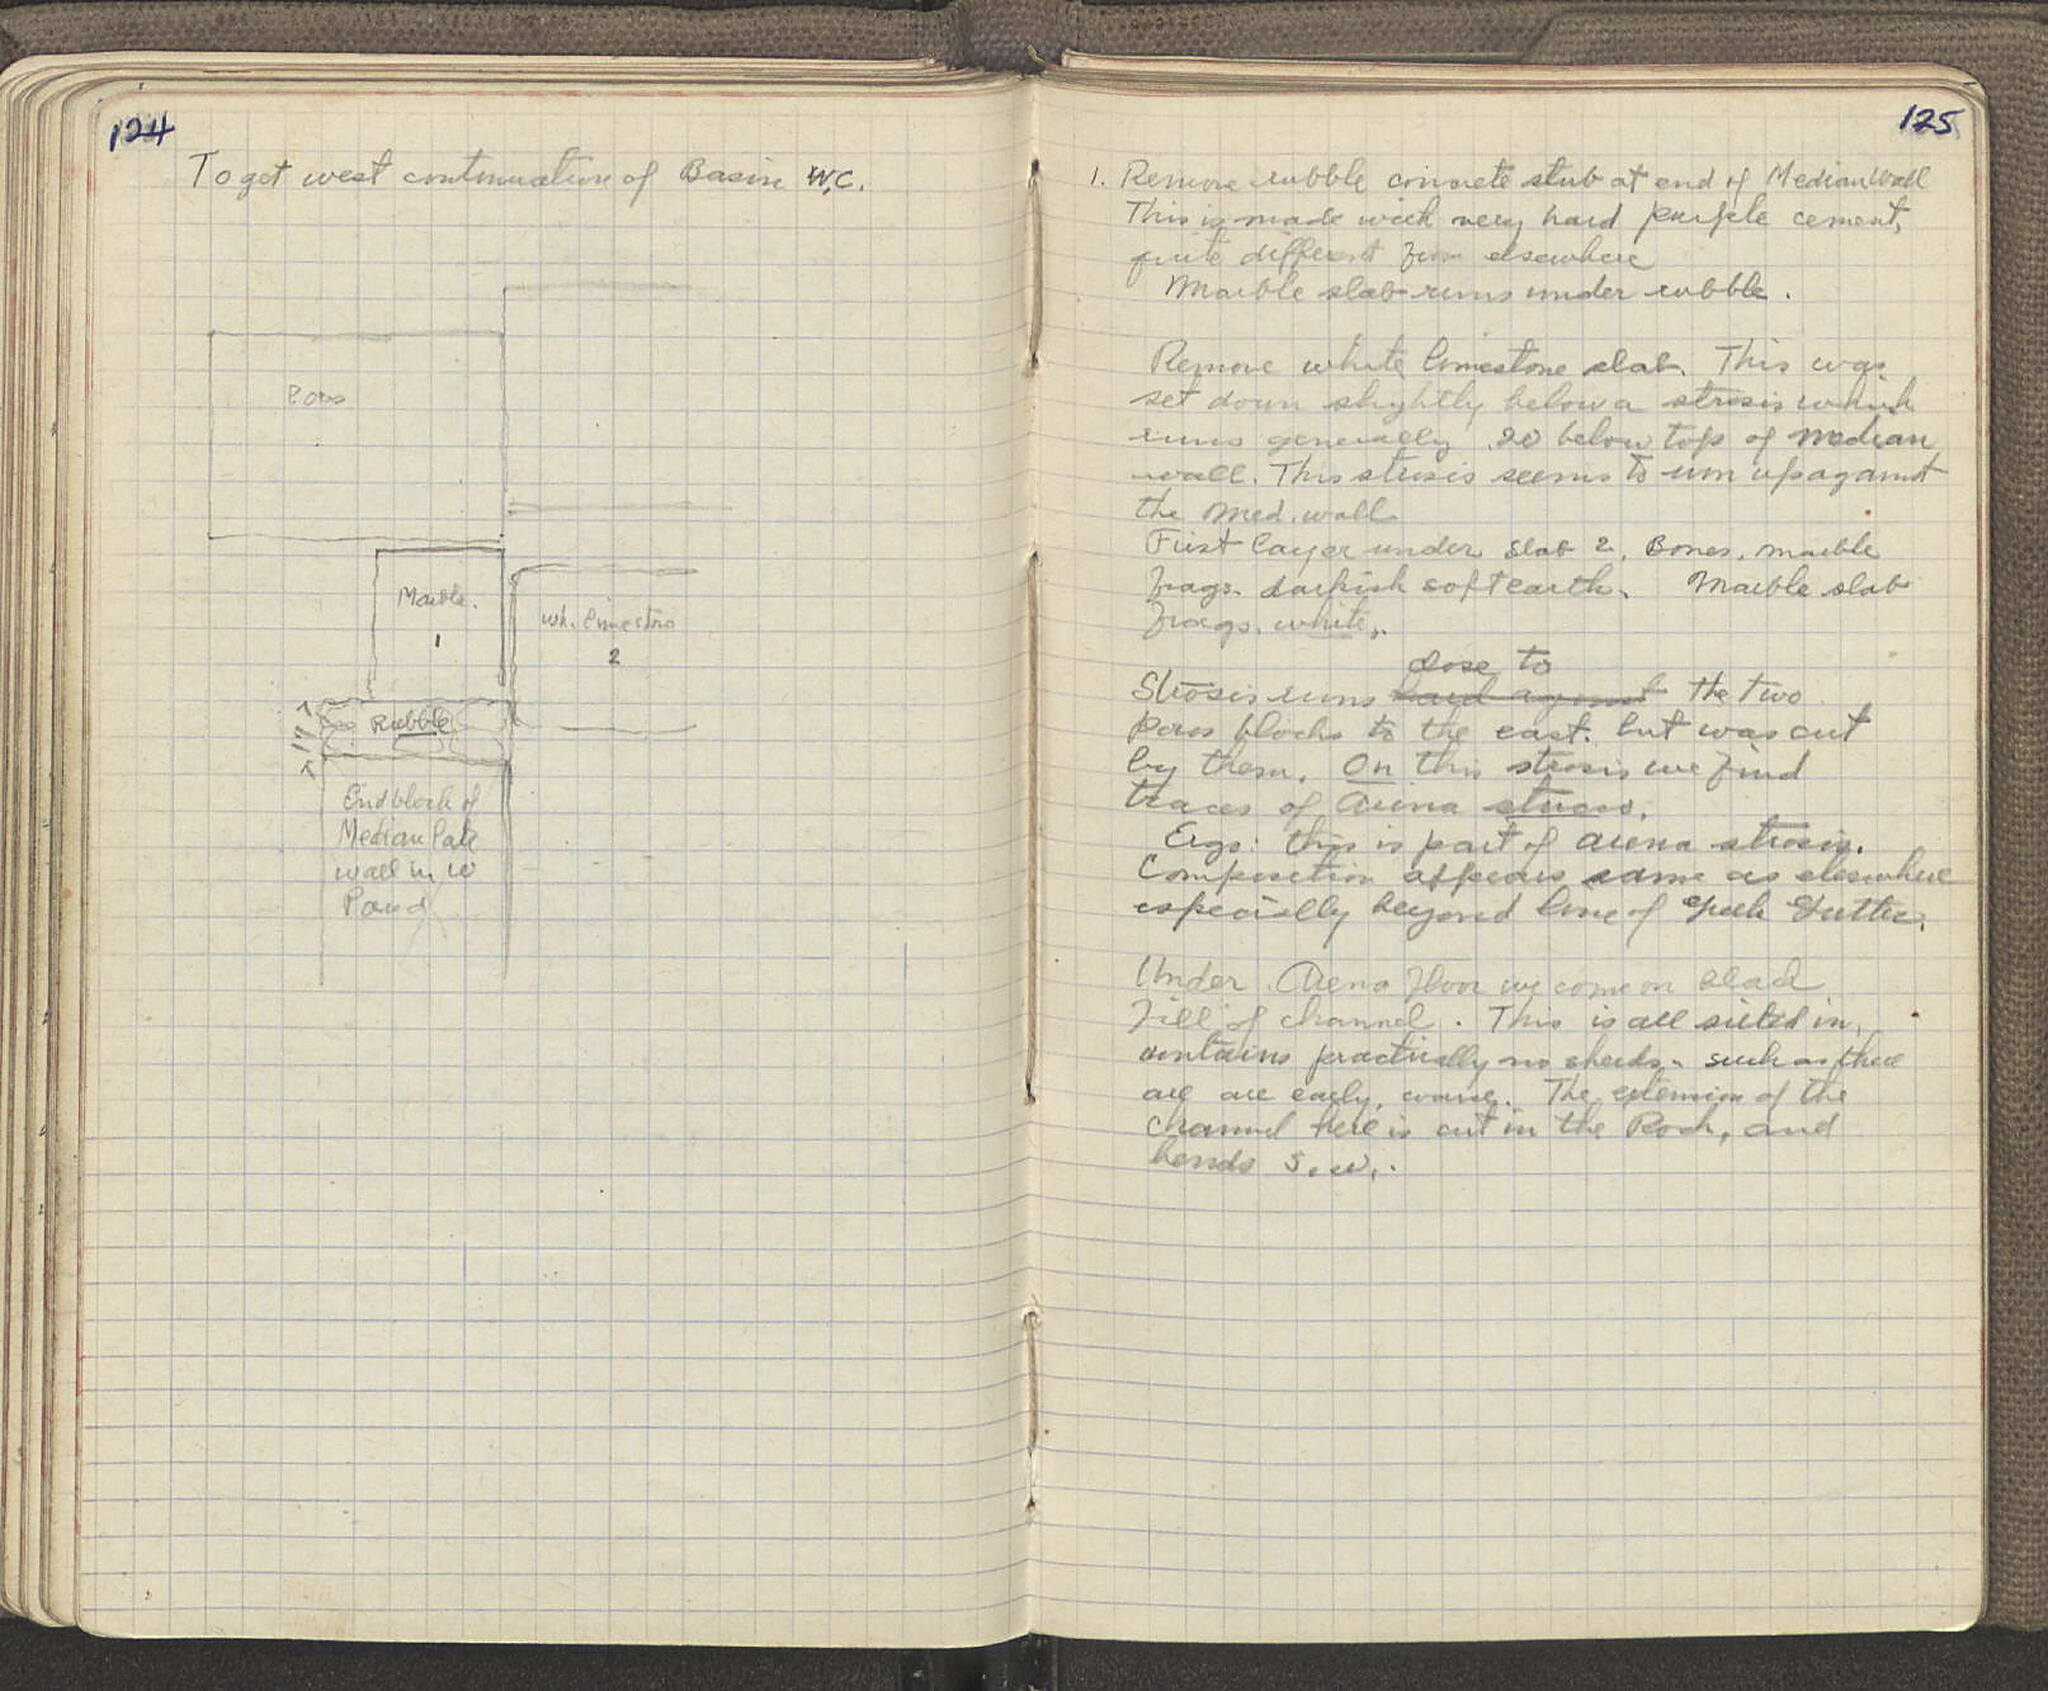 124
To get west continuation of Basin W.C.
Poros
Marble.
1
wh. limestone
2
.17
Rubble
End block of
Median Late
wall in W
Pond
125
1. Remove rubble concrete stub at end of Median Wall
This is made with very hard purple cement,
quite different from elsewhere
Marble slab runs under rubble.
Remove white limestone slab. This was
set down slightly below a strosis which
runs generally .20 below top of median
wall. This strosis seems to run up against
the med. wall
First layer under slab 2, Bones, marble
frags. darkish soft earth. Marble slab
frags. white.
close to
Strosis runs hard against the two
poros blocks to the east. but was cut
by them. On this strosis we find
traces of arena stucco.
Ergo: this is part of arena strosis.
Composition appears same as elsewhere
especially beyond line of Greek Gutter.
Under Arena floor we come on black
fill of channel. This is all silted in,
contains practically no sherds. such as there
are are early, coarse. The extension of the
channel here is cut in the Rock, and
bends S.W.